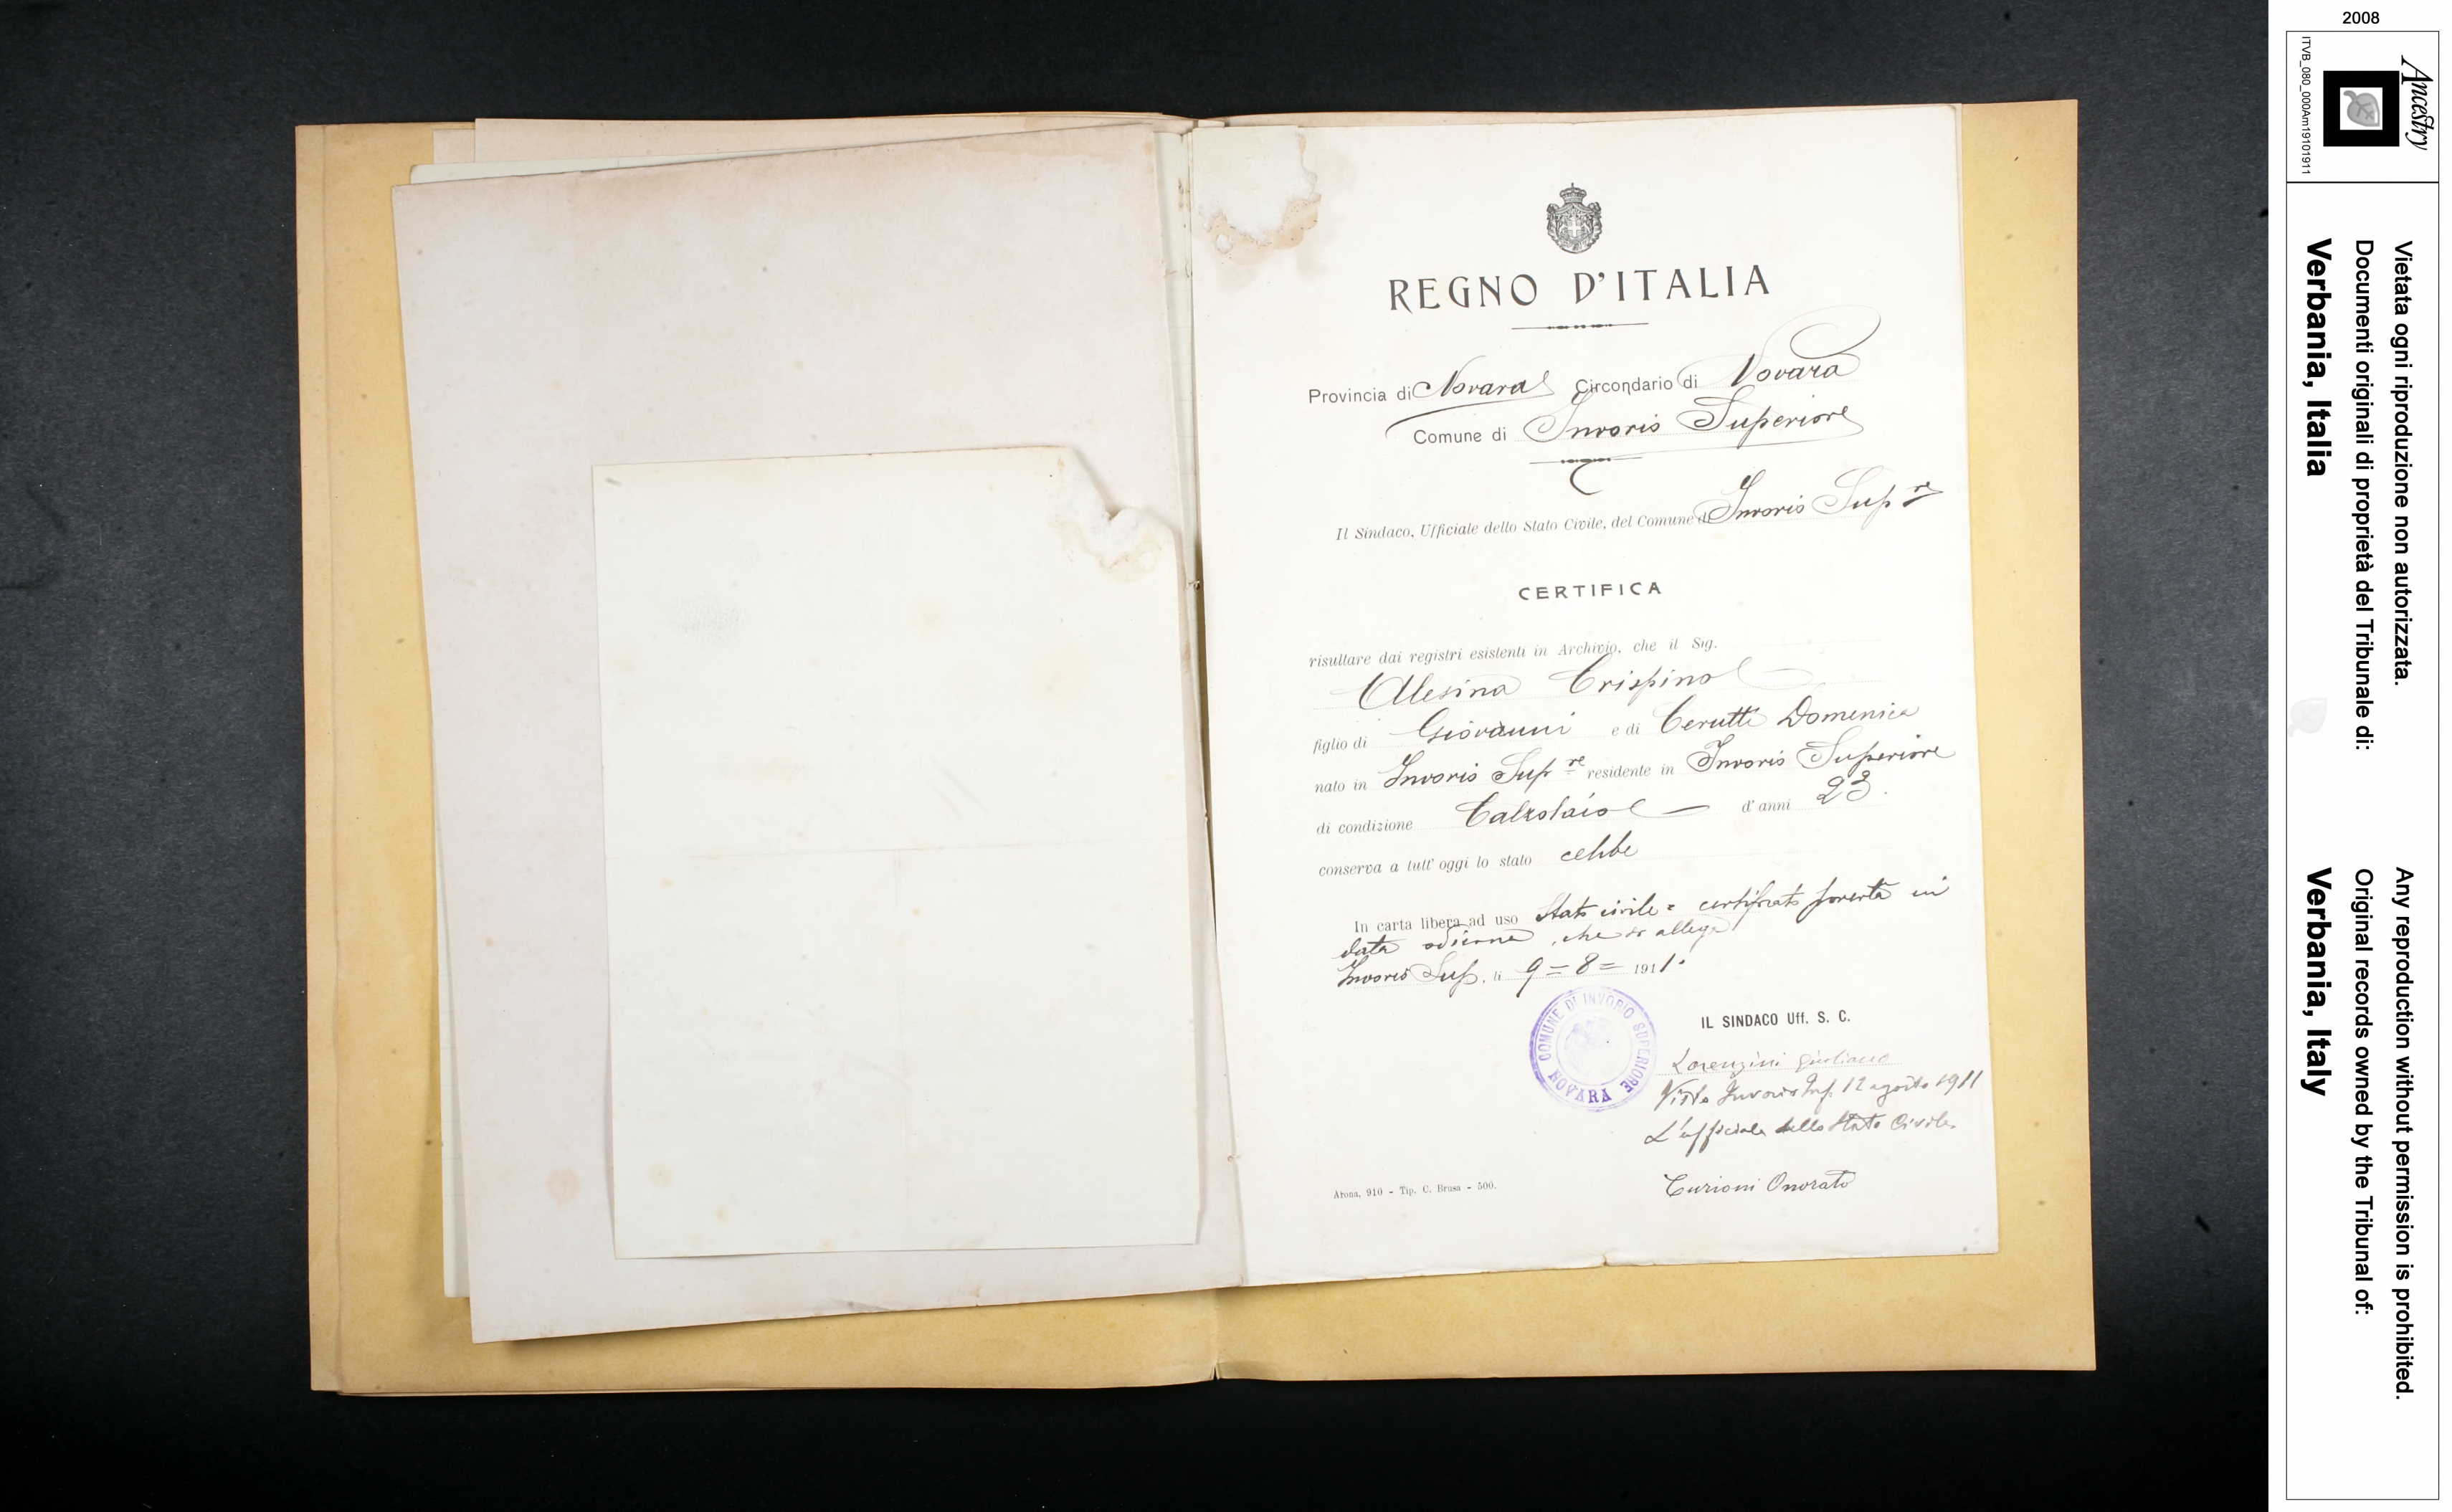 REGNO D'ITALIA
Provincia di Novara Circondario di Novara
Comune di Invorio Superiore
Il Sindaco, Ufficiale dello Stato Civile, del Comune di Invorio Sup re
CERTIFICA
risultare dai registri esistenti in Archivio, che il Sig.
Alesina Crispino
figlio di Giovanni e di Cerutti Domenica
nato in Invorio Sup re residente in Invorio Superiore
di condizione Calzolaio d'anni 23.
conserva a tutt'oggi lo stato celibe
In carta libera ad uso Stato civile = certificato povertà in
data odierna, che si allega
Invorio Sup. li 9=8= 1911.
COMUNE DI INVORIO SUPERIORE
NOVARA
IL SINDACO Uff. S. C.
Lorenzini Giuliano
Visto Invorio Inf. 12 agosto 1911
L'ufficiale dello Stato Civile
Curioni Onorato
Arona, 910 - Tip. C. Brusa - 500.
2008
Ancestry
ITVB_080_000Am19101911
Vietata ogni riproduzione non autorizzata.
Documenti originali di proprietà del Tribunale di:
Verbania, Italia
Any reproduction without permission is prohibited.
Original records owned by the Tribunal of:
Verbania, Italy